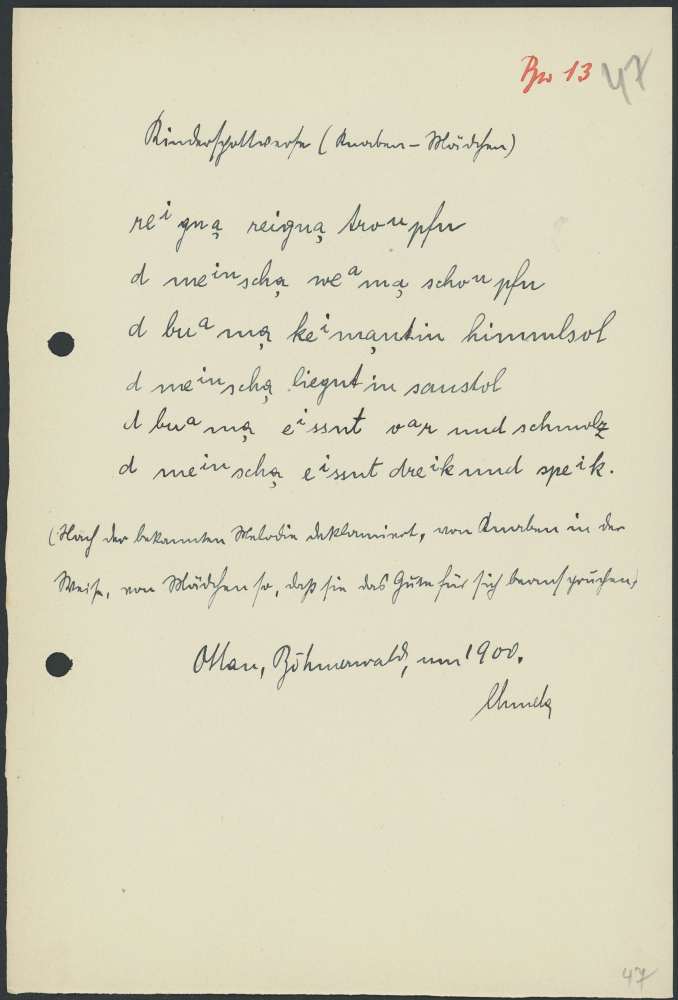 Bw 13 47
Kinderspottverse (Knaben - Mädchen)
reⁱ gną reigną troᵘpfn
d meⁱⁿschą weᵃmą schoᵘpfn
d buᵃmą keⁱmąntin himmlsol
d meⁱⁿschą liegnt in saustol
d buᵃmą eⁱssnt oᵃr und schmolz
d meⁱⁿschą eⁱssnt dreⁱk und speⁱk.
(Nach der bekannten Melodie deklamiert, von Knaben in der
Weise, von Mädchen so, daß sie das Gute für sich beanspruchen)
Ottau, Böhmerwald, um 1900.
47